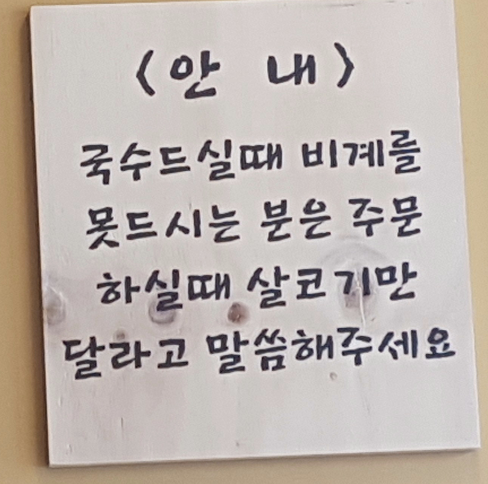 <안 내>
국수드실때 비계를
못드시는 분은 주문
하실때 살코기만
달라고 말씀해주세요